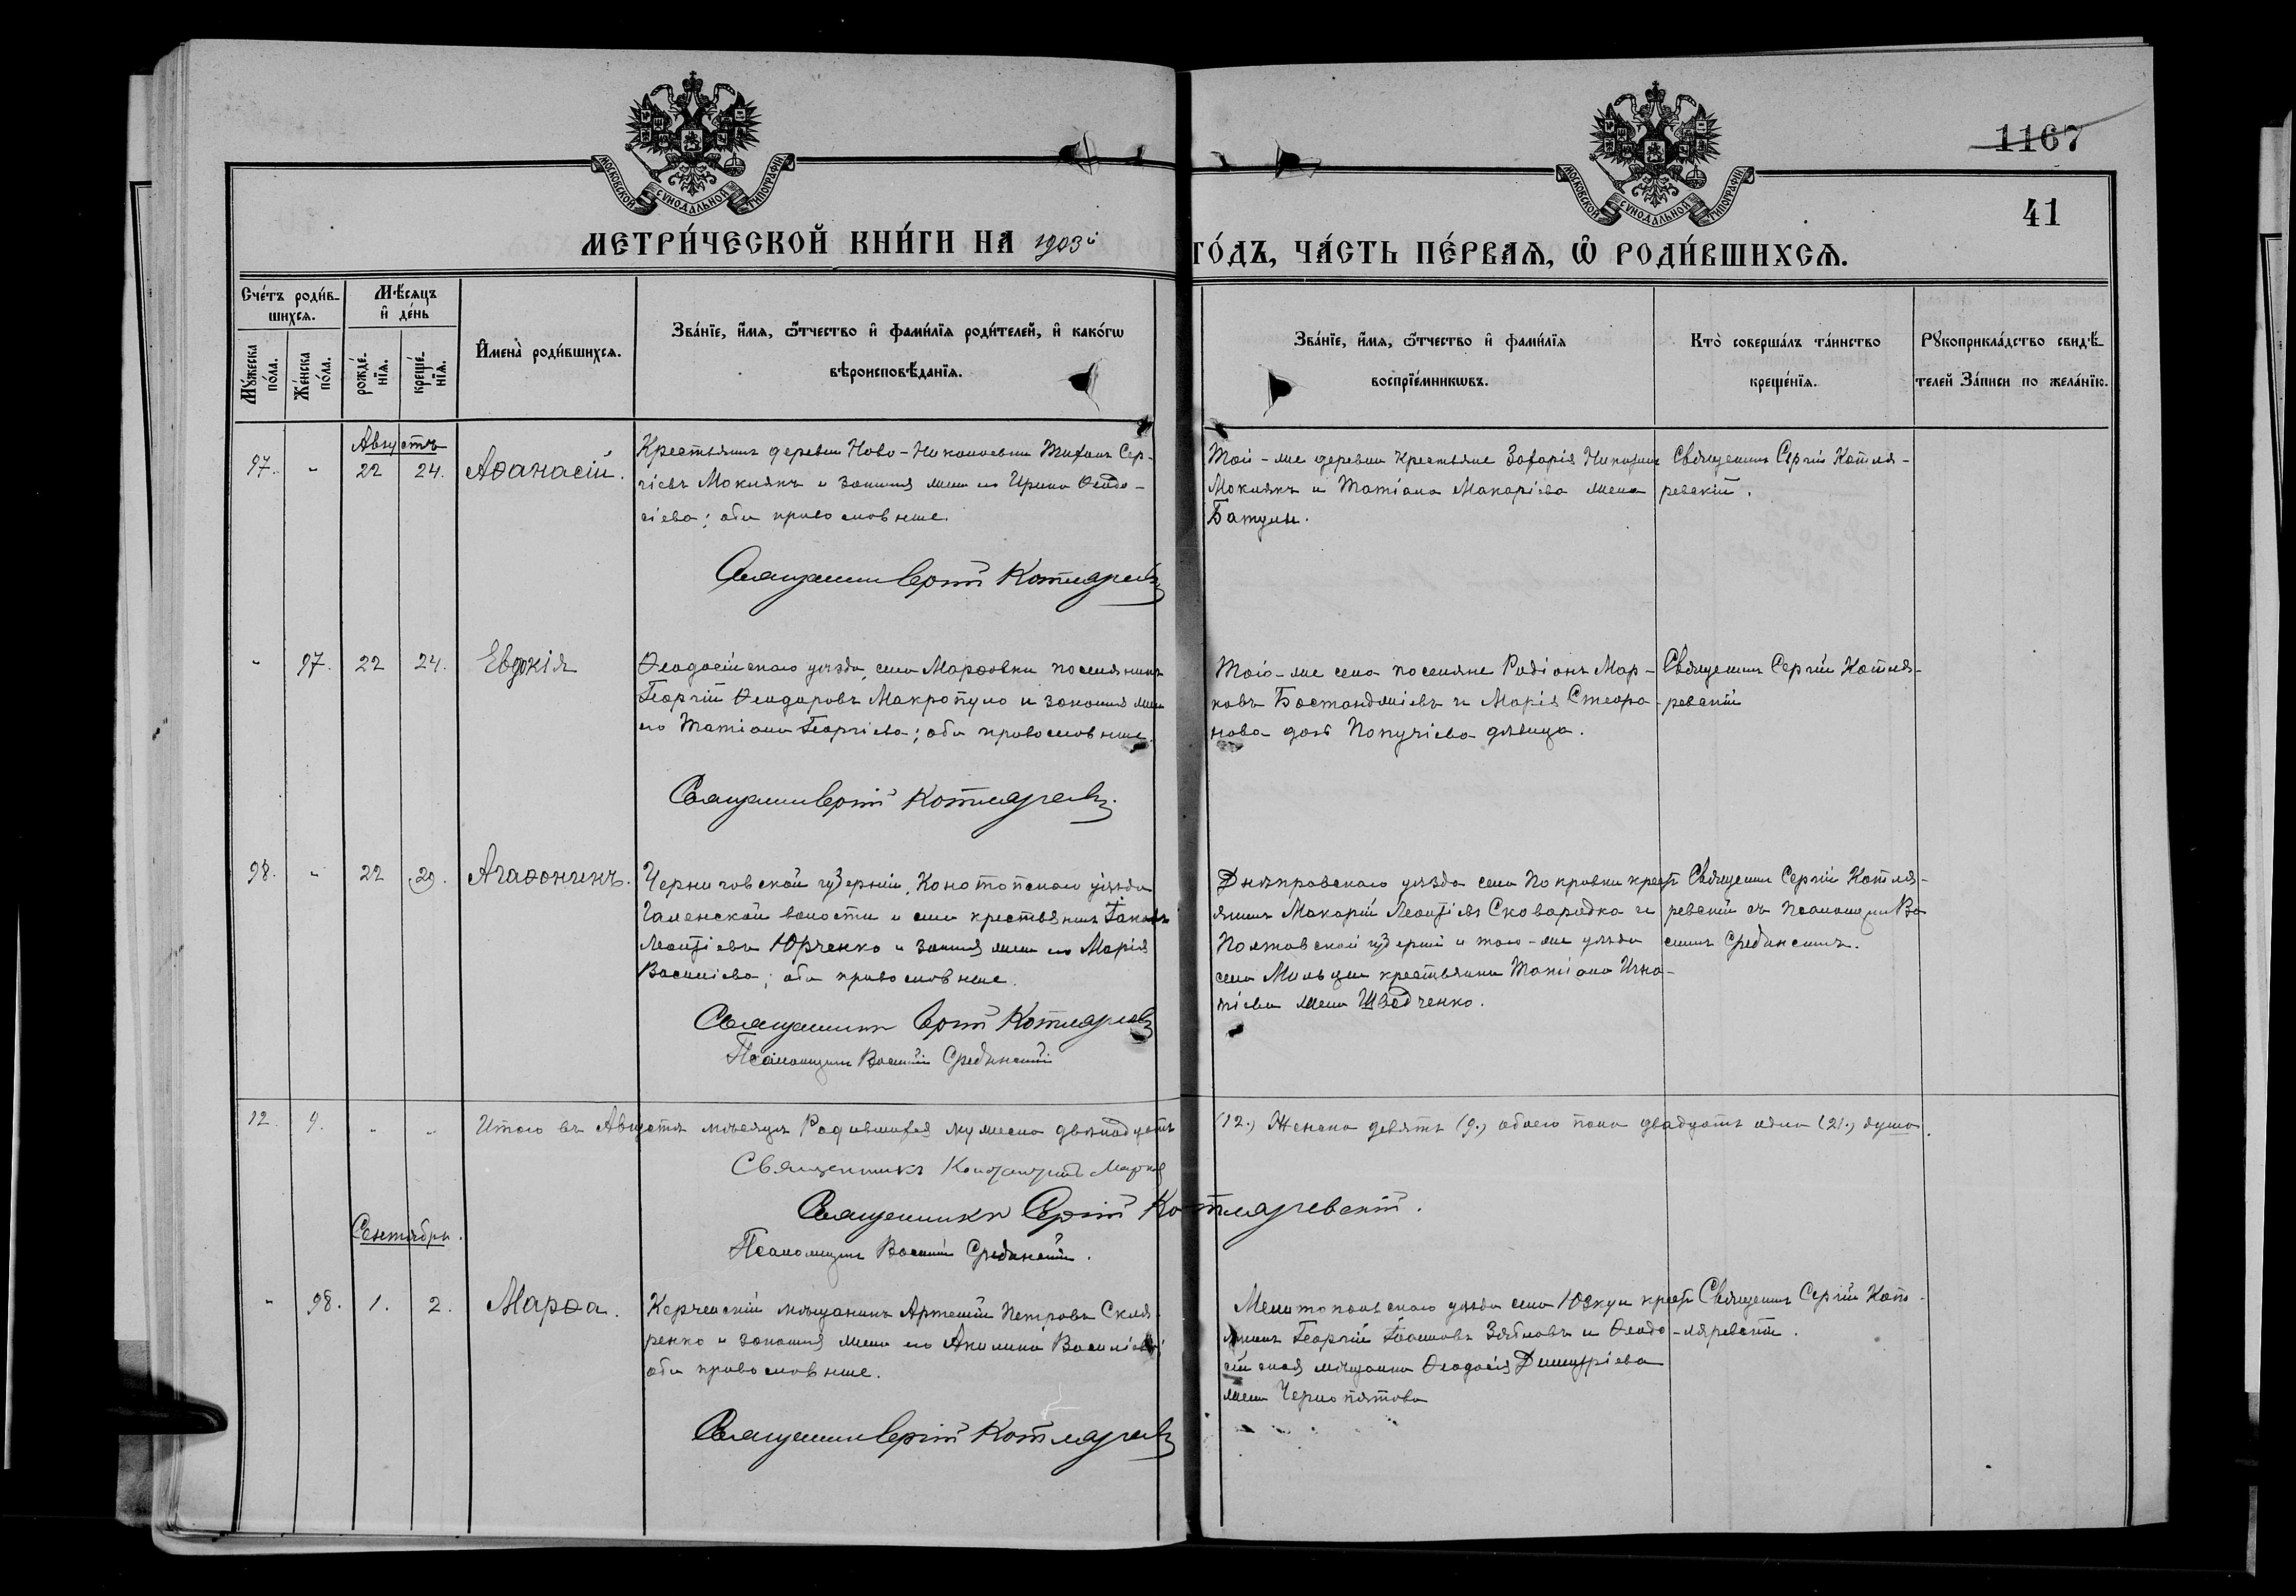 1167
41
МОСКОВСКОЙ СѴНОДАЛЬНОЙ ТИПОГРАФІИ
МОСКОВСКОЙ СѴНОДАЛЬНОЙ ТИПОГРАФІИ
МЕТРИ́ЧЕСКОЙ КНИ́ГИ НА 1903й ГО́ДЪ, ЧА́СТЬ ПЕ́РВАѦ, Ѡ҆ РОДИ́ВШИХСѦ.
Сче́тъ роди́в-
шихсѧ.
Мꙋ́жеска по́ла.
Же́нска по́ла.
Мѣ́сѧцъ и҆ де́нь
рожде́-нїѧ.
креще́-нїѧ.
И҆мена̀ роди́вшихсѧ.
Зва́нїе, и҆́мѧ, ѻ҆́тчество и҆ фами́лїѧ роди́телей, и҆ како́гѡ
вѣроисповѣ́данїѧ.
Зва́нїе, и҆́мѧ, ѻ҆́тчество и҆ фами́лїѧ
воспрїе́мникѡвъ.
Кто̀ соверша́лъ та́инство
креще́нїѧ.
Рꙋкоприкла́дство свидѣ́-
телей За́писи по жела́нїю.
Августъ
97. " 22 24. Аѳанасій.
Крестьянинъ деревни Ново-Николаевки Тихонъ Сер-
гіевъ Мокіякъ и законная жена его Ирина Ѳеодо-
сіева; оба православные.
Священникъ Сергій Котляревскій
Той-же деревни крестьяне Захарія
Мокіякъ и Татіана Макаріева жена
Священникъ Сергій Котля-
ревскій.
" 97. 22 24. Евдокія
Ѳеодосійскаго уѣзда, села Марфовки поселянинъ
Георгій Ѳеодоровъ Макропуло и законная жена
его Татіана Георгіева; оба православные.
Священникъ Сергій Котляревскій.
Того-же села поселяне Родіонъ Мар-
ковъ Бостанджіевъ и Марія Стефа-
нова дочь Попучіева дѣвица.
Священникъ Сергій Котля-
ревскій
98. " 22 29. Агаѳоникъ.
Черниговской губерніи, Конотопскаго уѣзда
волости и села крестьянинъ Іаковъ
Леонтіевъ Юрченко и законная жена его Марія
Василіева; оба православные.
Священникъ Сергій Котляревскій
Псаломщикъ Василій Срединскій
Днѣпровскаго уѣзда села Покровки крест-
янинъ Макарій Леонтіевъ Сковородка и
Полтавской губерніи и того-же уѣзда
села Мильцы крестьянка Татіана Игна-
тіева жена Шведченко.
Священникъ Сергій Котля-
ревскій съ псаломщ. Ва-
силіемъ Срединскимъ.
12. 9. " " Итого въ Августѣ мѣсяцѣ родившихся мужеска двѣнадцать (12.) Женска девять (9.) обоего пола двадцать одна (21.) душа.
Священникъ Марковъ
Священникъ Сергій Котляревскій.
Псаломщикъ Василій Срединскій.
Сентябрь.
" 98. 1. 2. Марѳа.
Керченскій мѣщанинъ Артемій Петровъ Скля-
ренко и законная жена его Акилина Василіева;
оба православные.
Священникъ Сергій Котляревскій
Мелитопольскаго уѣзда села Юзкуи крест-
янинъ Георгій Іоанновъ Зябловъ и Ѳеодо-
сійская мѣщанка Ѳеодосія Димитріева
жена Чернопятова
Священникъ Сергій Кот-
ляревскій.